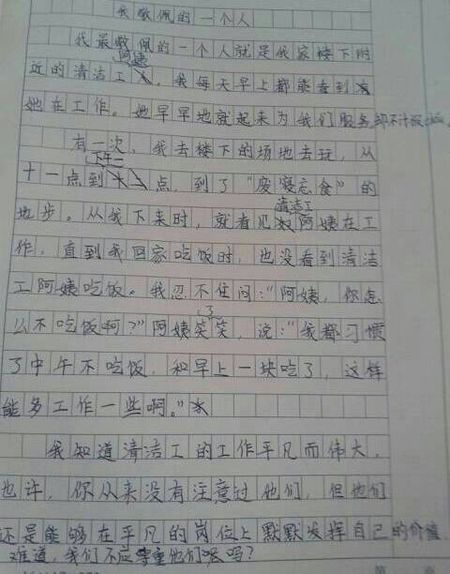 我敬佩的一个人
我最敬佩的一个人就是我家楼下附
近的清洁工阿姨，我每天早上都能看到
她在工作。她早早地就起来为我们服务,却不计报酬。
有一次，我去楼下的场地去玩，从
十一点到下午一点，到了“废寝忘食”的
地步。从我下来时，就看见清洁工阿姨在工
作，直到我回家吃饭时，也没看到清洁
工阿姨吃饭。我忍不住问：“阿姨，你怎
么不吃饭啊？”阿姨笑了笑，说：“我都习惯
了中午不吃饭，和早上一块吃了，这样
能多工作一些啊。”
我知道清洁工的工作平凡而伟大，
也许，你从来没有注意过他们，但他们
还是能够在平凡的岗位上默默发挥自己的价值，
难道，我们不应尊重他们吗？